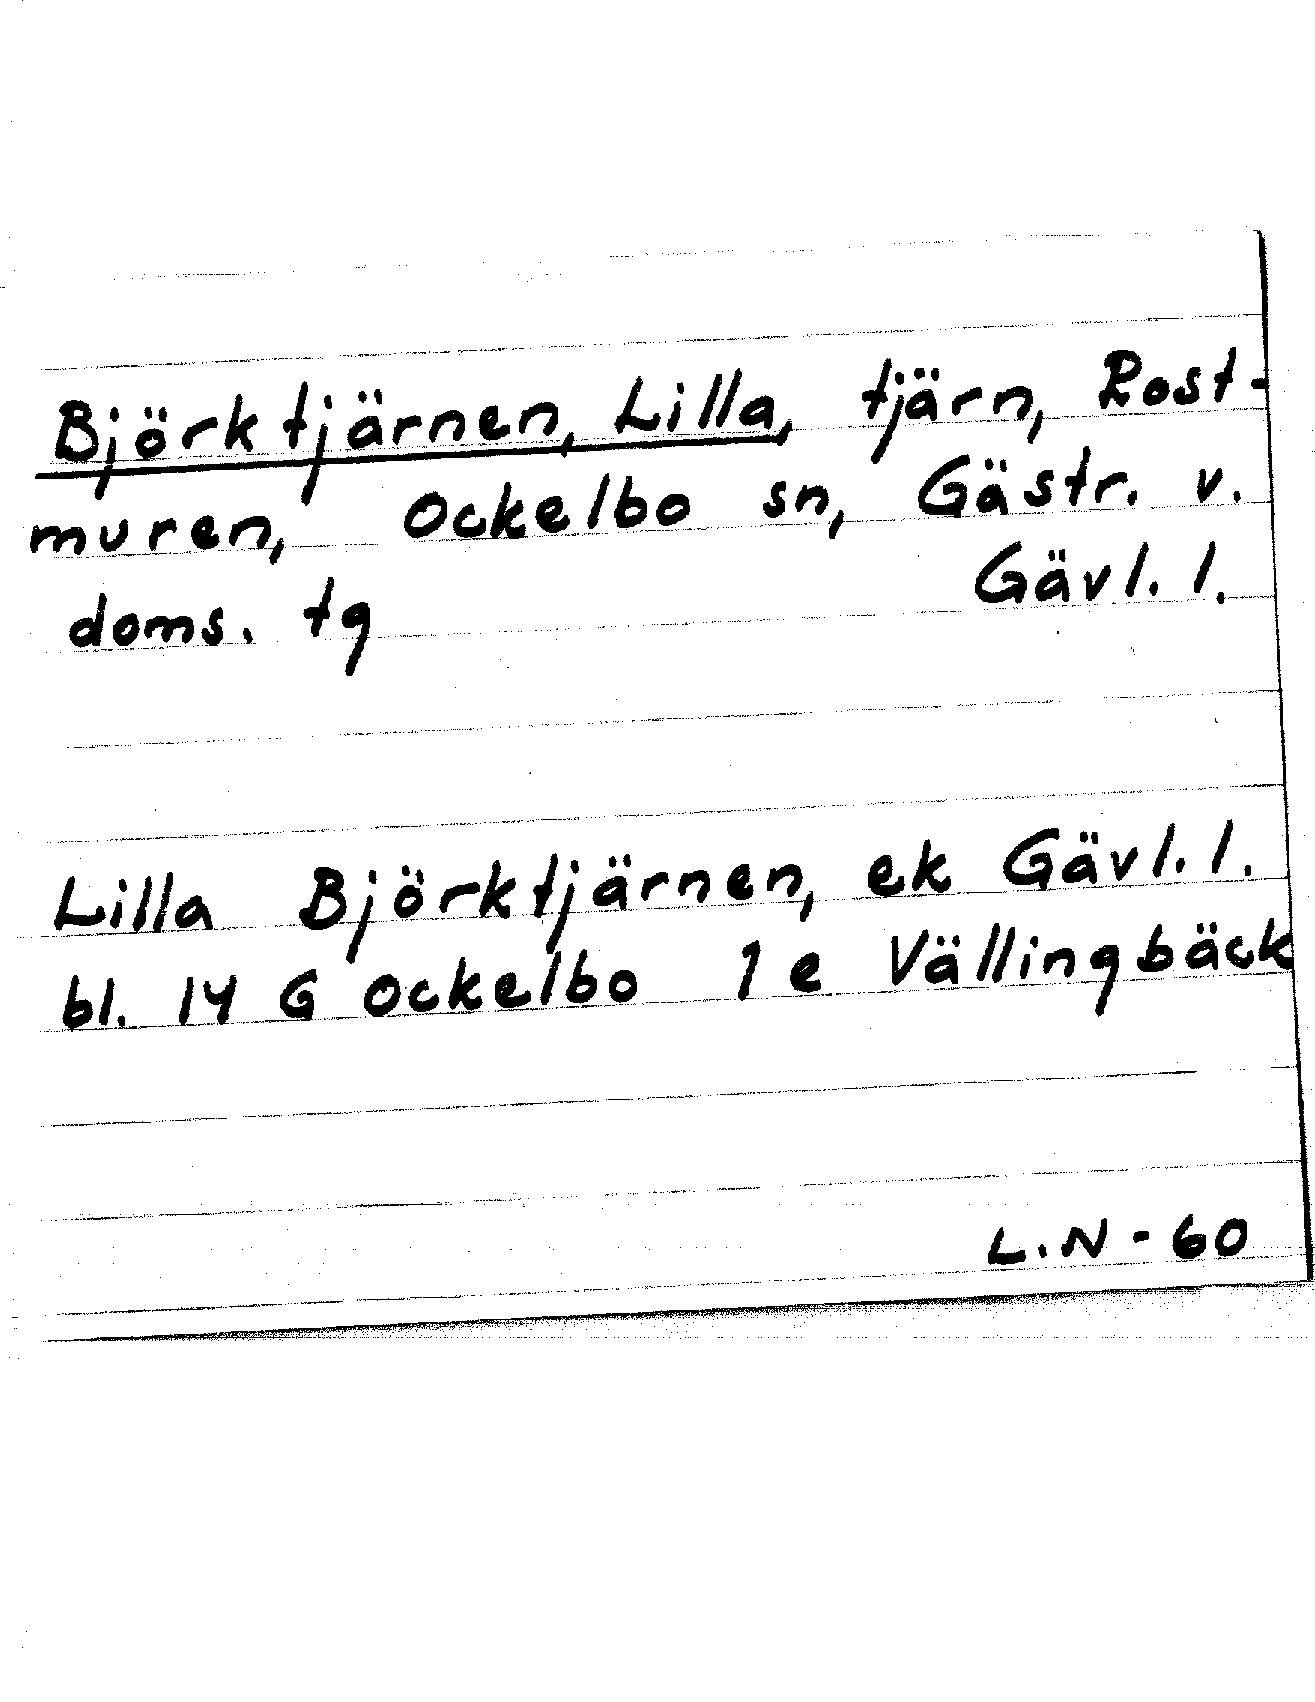 Björktjärnen, Lilla, tjärn, Rost-
muren, Ockelbo sn, Gästr. v.
doms. tg Gävl. l.
Lilla Björktjärnen, ek Gävl. l.
bl. 14 G Ockelbo 1 e Vällingbäck
L.N - 60